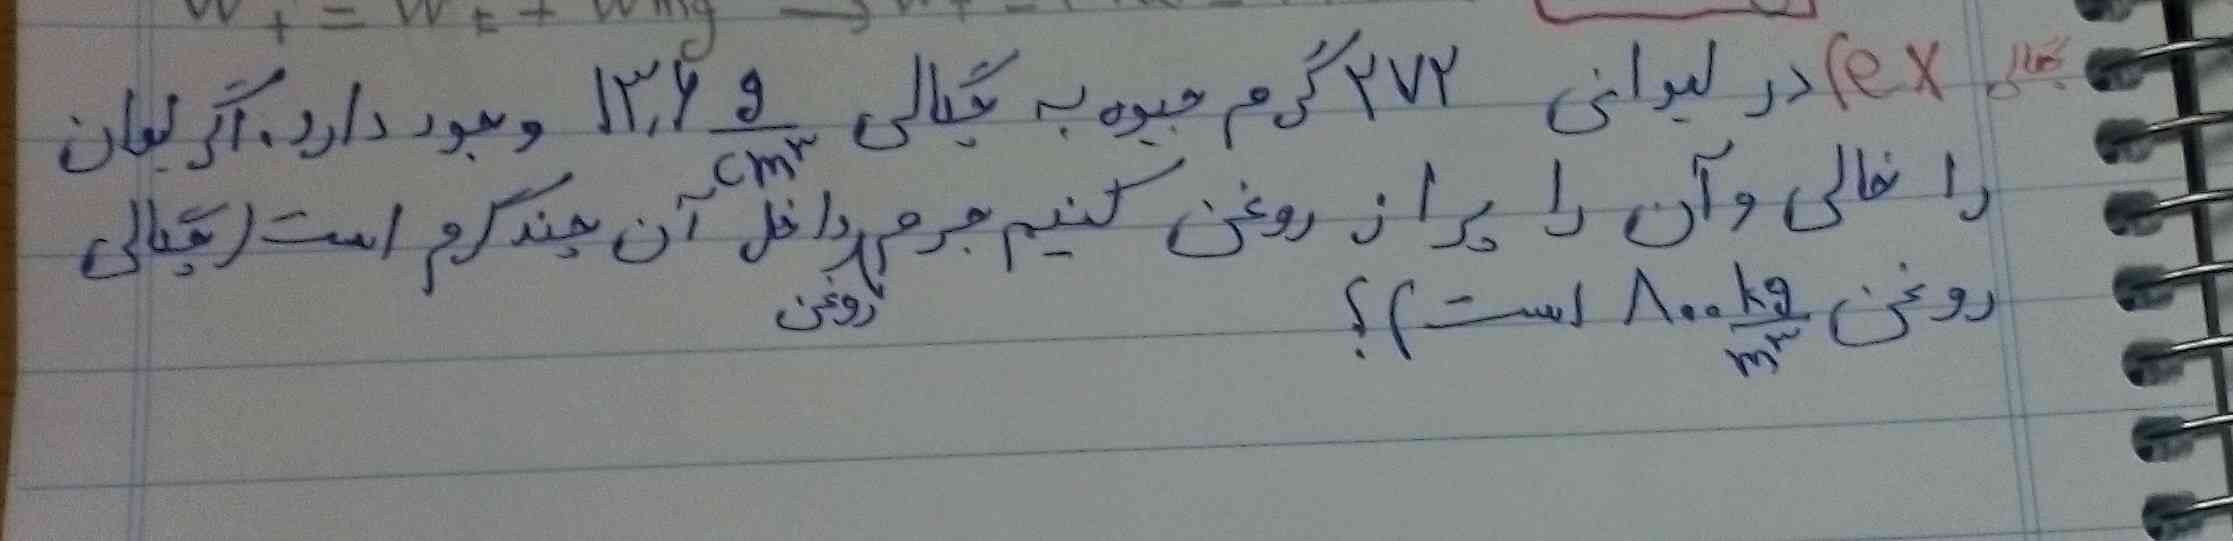 چگالی
ex) در لیوانی ۲۷۲ گرم جیوه به چگالی ۱۳,۶ g/cm۳ وجود دارد. اگر لیوان
را خالی و آن را پر از روغن کنیم جرم روغن داخل آن چند گرم است (چگالی
روغن ۸۰۰ kg/m۳ است)؟